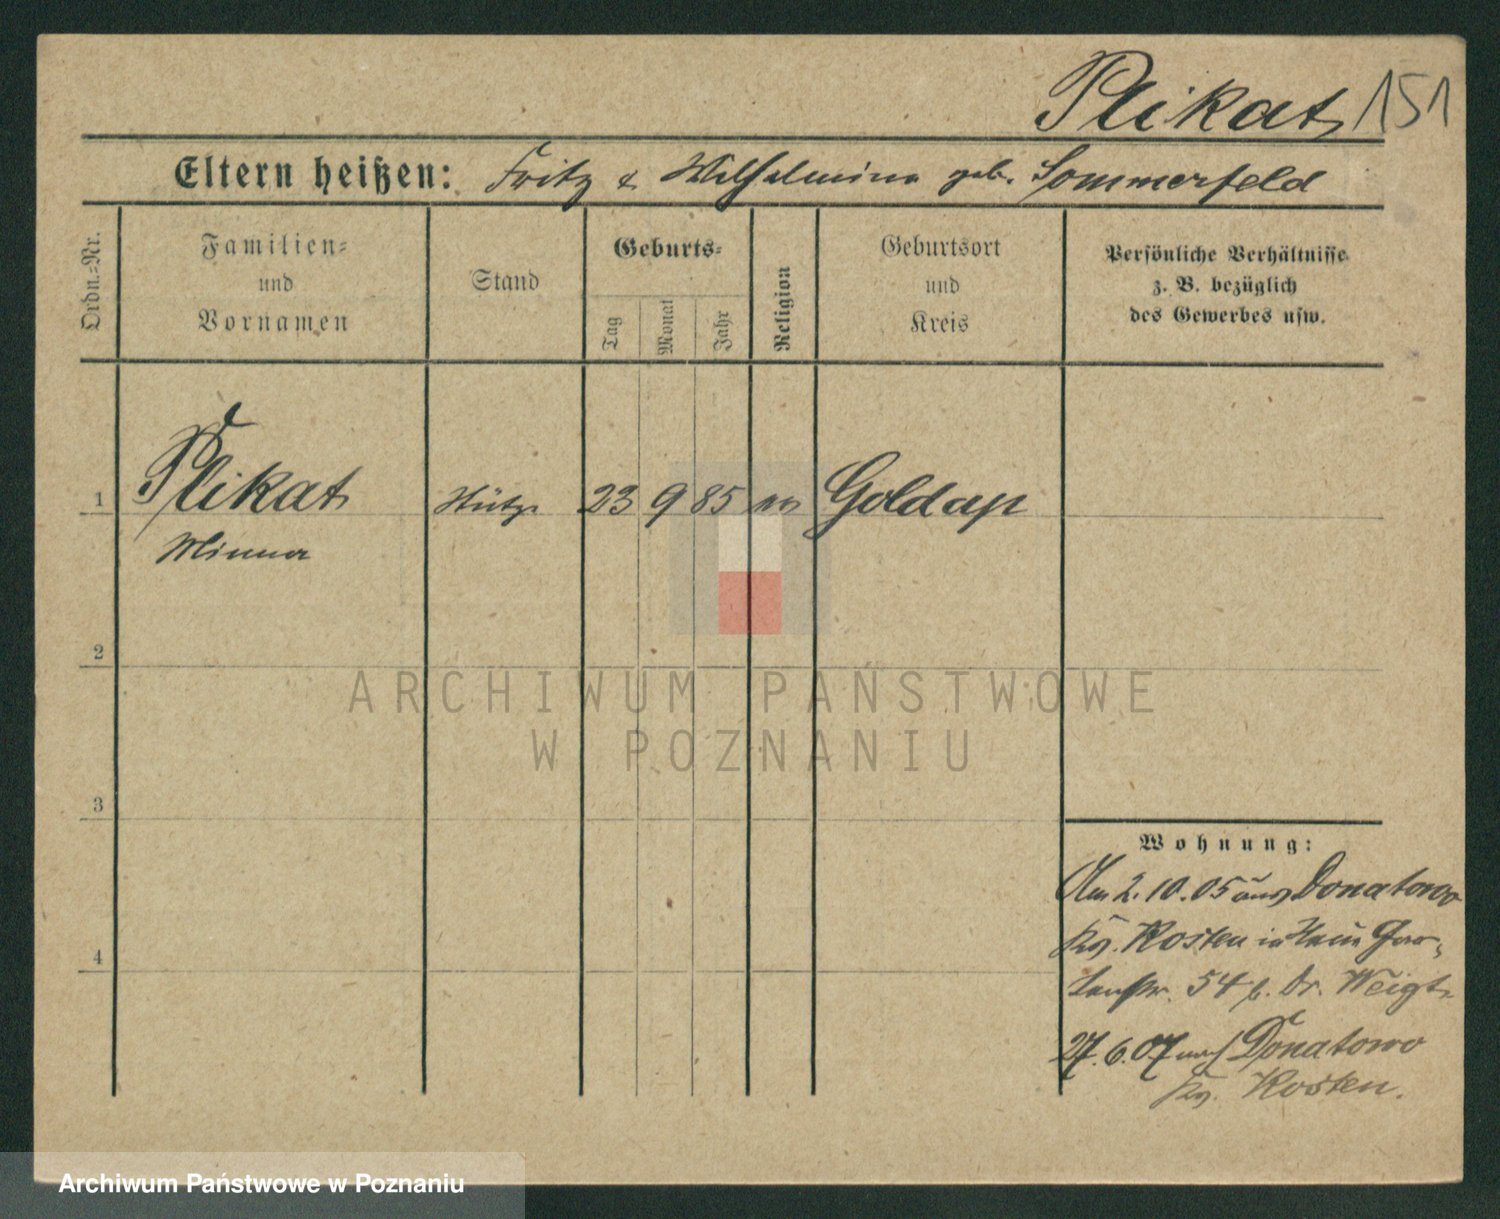 Plikat 151
Eltern heißen: Fritz & Wilhelmine geb. Sommerfeld
Ordn.=Nr.
Familien=
und
Vornamen
Stand
Geburts=
Tag
Monat
Jahr
Religion
Geburtsort
und
Kreis
Persönliche Verhältnisse
z. B. bezüglich
des Gewerbes usw.
1 Plikat Stütze 23 9 85 ev Goldap
Minna
2
3
4
Wohnung:
Am 2.10.05 aus Donatowo
Krs. Kosten
54 b. Dr. Weigt
27.6.07 nach Donatowo
Krs. Kosten.
ARCHIWUM PAŃSTWOWE
W POZNANIU
Archiwum Państwowe w Poznaniu